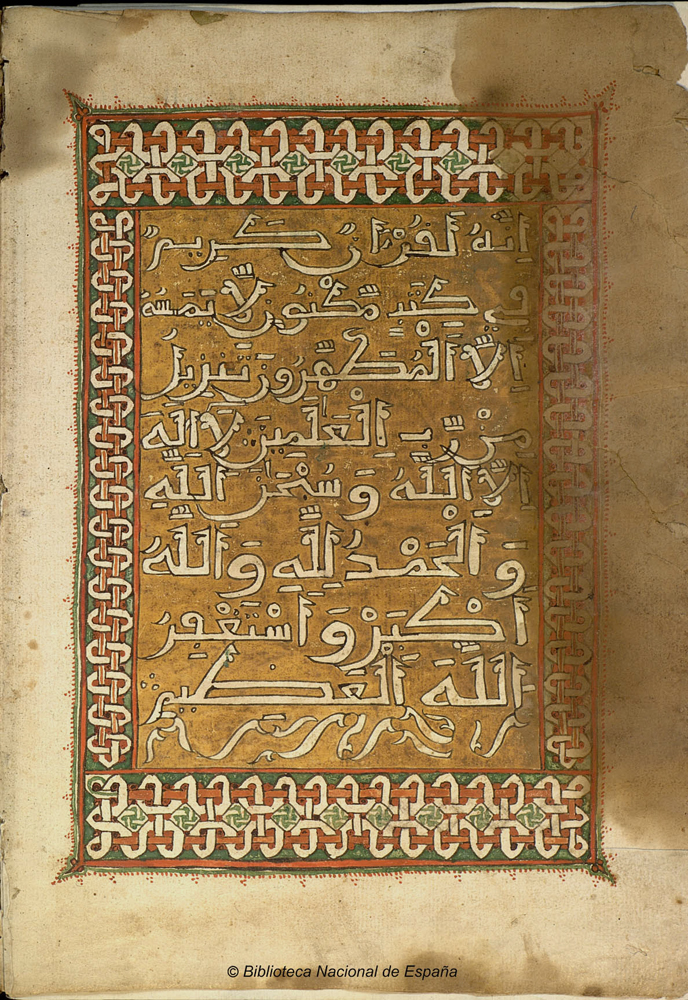 إِنَّهُ لَقُرْءَانٌ كَرِيمٌ
فِي كِتَبٍ مَّكْنُونٍ لَّا يَمَسُّهُ
إِلَّا الْمُطَهَّرُونَ تَنزِيلٌ
مِّن رَّبِّ الْعَلَمِينَ لَا إِلَهَ
إِلَّا اللَّهُ وَسُبْحَنَ اللَّهِ
وَالْحَمْدُ لِلَّهِ وَاللَّهُ
أَكْبَرُ وَأَسْتَغْفِرُ
اللَّهَ الْعَظِيمَ
© Biblioteca Nacional de España